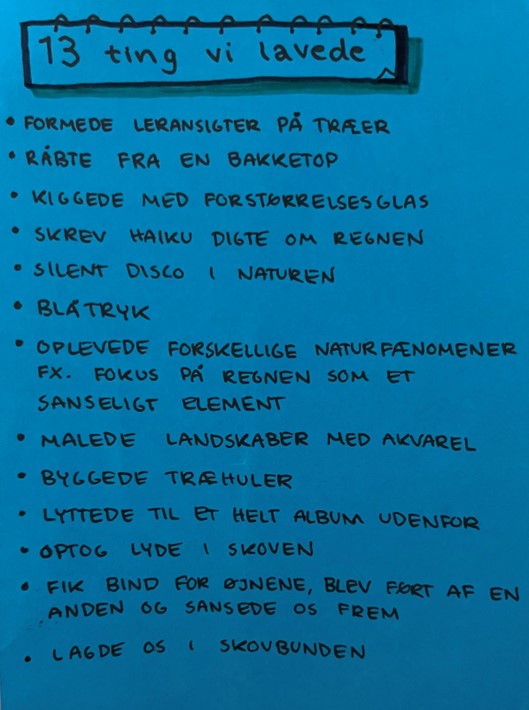 13 ting vi lavede
• FORMEDE LERANSIGTER PÅ TRÆER
• RÅBTE FRA EN BAKKETOP
• KIGGEDE MED FORSTØRRELSESGLAS
• SKREV HAIKU DIGTE OM REGNEN
• SILENT DISCO I NATUREN
• BLÅTRYK
• OPLEVEDE FORSKELLIGE NATURFÆNOMENER
FX. FOKUS PÅ REGNEN SOM ET
SANSELIGT ELEMENT
• MALEDE LANDSKABER MED AKVAREL
• BYGGEDE TRÆHULER
• LYTTEDE TIL ET HELT ALBUM UDENFOR
• OPTOG LYDE I SKOVEN
• FIK BIND FOR ØJNENE, BLEV FØRT AF EN
ANDEN OG SANSEDE OS FREM
• LAGDE OS I SKOVBUNDEN